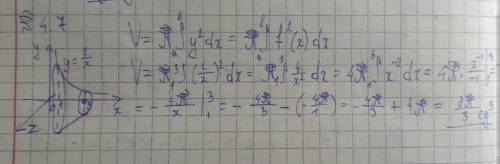 4.7
y
y=2/x
x
z
V = π∫ₐᵇ y²dx = π∫ₐᵇ f²(x)dx
V = π∫₁³ (2/x)²dx = π∫₁³ 4/x² dx = 4π∫ x⁻²dx = 4π · x⁻¹/-1 |₁³
= - 4π/x |₁³ = - 4π/3 - (- 4π/1) = - 4π/3 + 4π = 8π/3